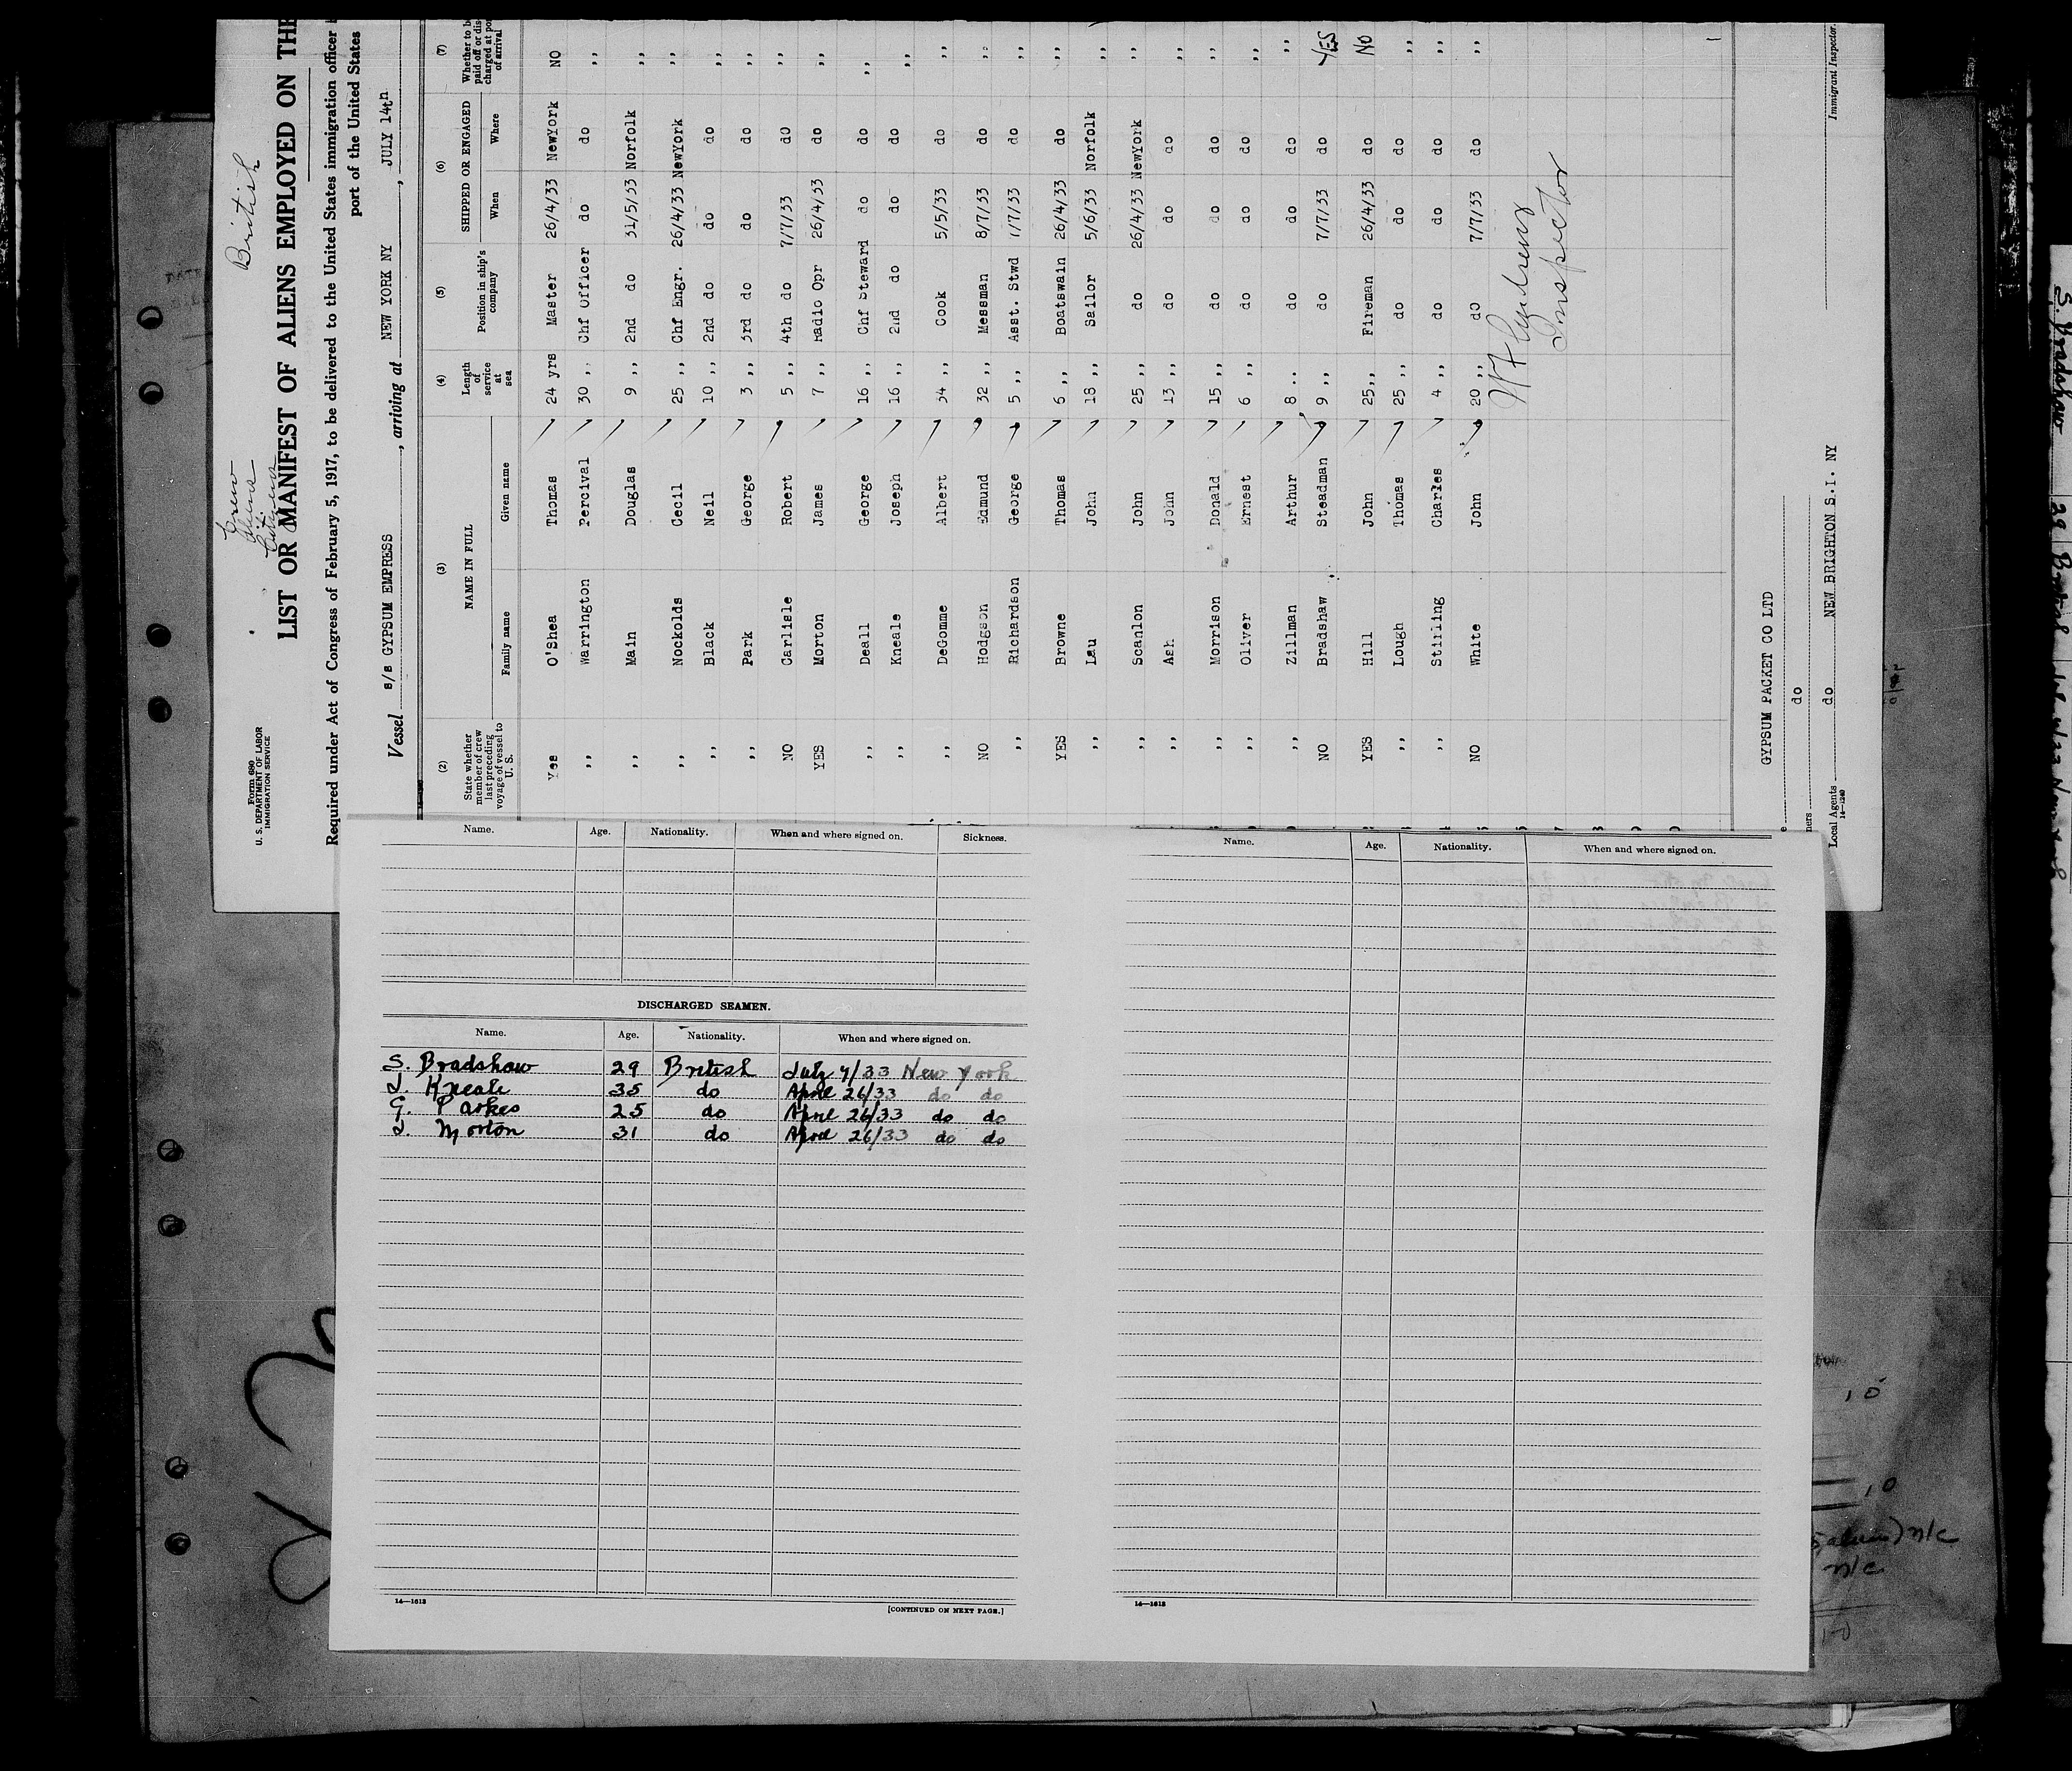 Form 680
U. S. DEPARTMENT OF LABOR
IMMIGRATION SERVICE
Crew
Aliens
Citizens
British
LIST OR MANIFEST OF ALIENS EMPLOYED ON THE
Required under Act of Congress of February 5, 1917, to be delivered to the United States immigration officer
port of the United States
Vessel s/s GYPSUM EMPRESS , arriving at NEW YORK NY , JULY 14th
(2) (3) (4) (5) (6) (7)
State whether member of crew last preceding voyage of vessel to U. S. NAME IN FULL Family name Given name Length of service at sea Position in ship's company SHIPPED OR ENGAGED When Where Whether to be paid off or dis charged at por of arrival
Yes O'Shea Thomas 24 yrs Master 26/4/33 NewYork NO
,, Warrington Percival 30 ,, Chf Officer do do ,,
,, Main Douglas 9 ,, 2nd do 31/5/33 Norfolk ,,
,, Nockolds Cecil 25 ,, Chf Engr. 26/4/33 NewYork ,,
,, Black Neil 10 ,, 2nd do do do ,,
,, Park George 3 ,, 3rd do do do ,,
NO Carlisle Robert 5 ,, 4th do 7/7/33 do ,,
YES Morton James 7 ,, Radio Opr 26/4/33 do ,,
,, Deall George 16 ,, Chf Steward do do ,,
,, Kneale Joseph 16 ,, 2nd do do do ,,
,, DeGomme Albert 34 ,, Cook 5/5/33 do ,,
NO Hodgson Edmund 32 ,, Messman 8/7/33 do ,,
,, Richardson George 5 ,, Asst. Stwd 7/7/33 do ,,
YES Browne Thomas 6 ,, Boatswain 26/4/33 do ,,
,, Lau John 18 ,, Sailor 5/6/33 Norfolk ,,
,, Scanlon John 25 ,, do 26/4/33 NewYork ,,
,, Ash John 13 ,, do do do ,,
,, Morrison Donald 15 ,, do do do ,,
,, Oliver Ernest 6 ,, do do do ,,
,, Zillman Arthur 8 ,, do do do ,,
NO Bradshaw Steadman 9 ,, do 7/7/33 do YES
YES Hill John 25,, Fireman 26/4/33 do NO
,, Lough Thomas 25 ,, do do do ,,
,, Stirling Charles 4 ,, do do do ,,
NO White John 20 ,, do 7/7/33 do ,,
Inspector
GYPSUM PACKET CO LTD
ners do
Local Agents do NEW BRIGHTON S.I. NY Immigrant Inspector.
14-1240
Name. Age. Nationality. When and where signed on. Sickness.
DISCHARGED SEAMEN.
Name. Age. Nationality. When and where signed on.
S. Bradshaw 29 British July 7/33 New York
J. Kneale 35 do April 26/33 do do
G. Parkes 25 do April 26/33 do do
J. Morton 31 do April 26/33 do do
14—1613
[CONTINUED ON NEXT PAGE.]
Name. Age. Nationality. When and where signed on.
14—1613
10
10
n/c
n/c
S. Bradshaw 29 British